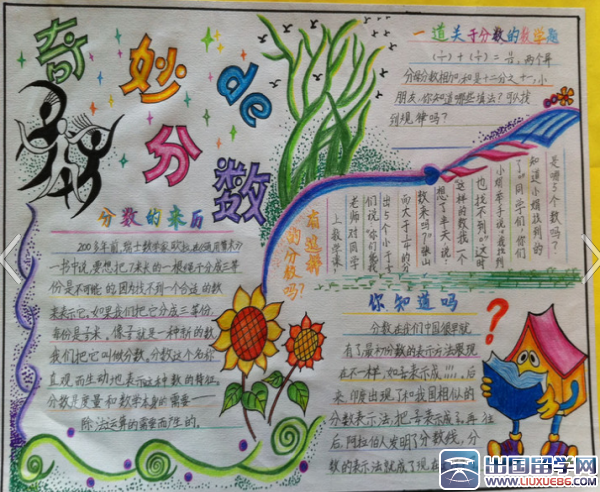 奇妙de分数
一道关于分数的数学题
分母分数相加,和是十二分之十一,小
朋友,你知道哪些填法?可以找
到规律吗?
分数的来历
200多年前,瑞士数学家欧拉,在《通用算术》
一书中说,要想把7米长的一根绳子分成三等
份是不可能的,因为找不到一个合适的数
来表示它,如果我们把它分成三等份,
每份是7/3米。像7/3就是一种新的数,
我们把它叫做分数,分数这个名称
直观而生动地表示这种数的特征。
分数是度量和数学本身的需要——
除法运算的需要而产生的。
有这样
的分数吗?
上数学课,
老师对同学
们说:“你们能找
出5个小于
数来吗?”张山
想了半天说
这样的数我一个
也找不到。”这时
小娟举手说:“我找到
了。”同学们,你们
知道小娟找到的
是哪5个数吗?
你知道吗
分数在我们中国很早就
有了,最初分数的表示方法跟现
在不一样,
来,印度出现了和我国相似的
分数表示法,
后,阿拉伯人发明了分数线,分
数的表示法就成了现在
?
出国留学网
WWW.LIUXUE86.COM